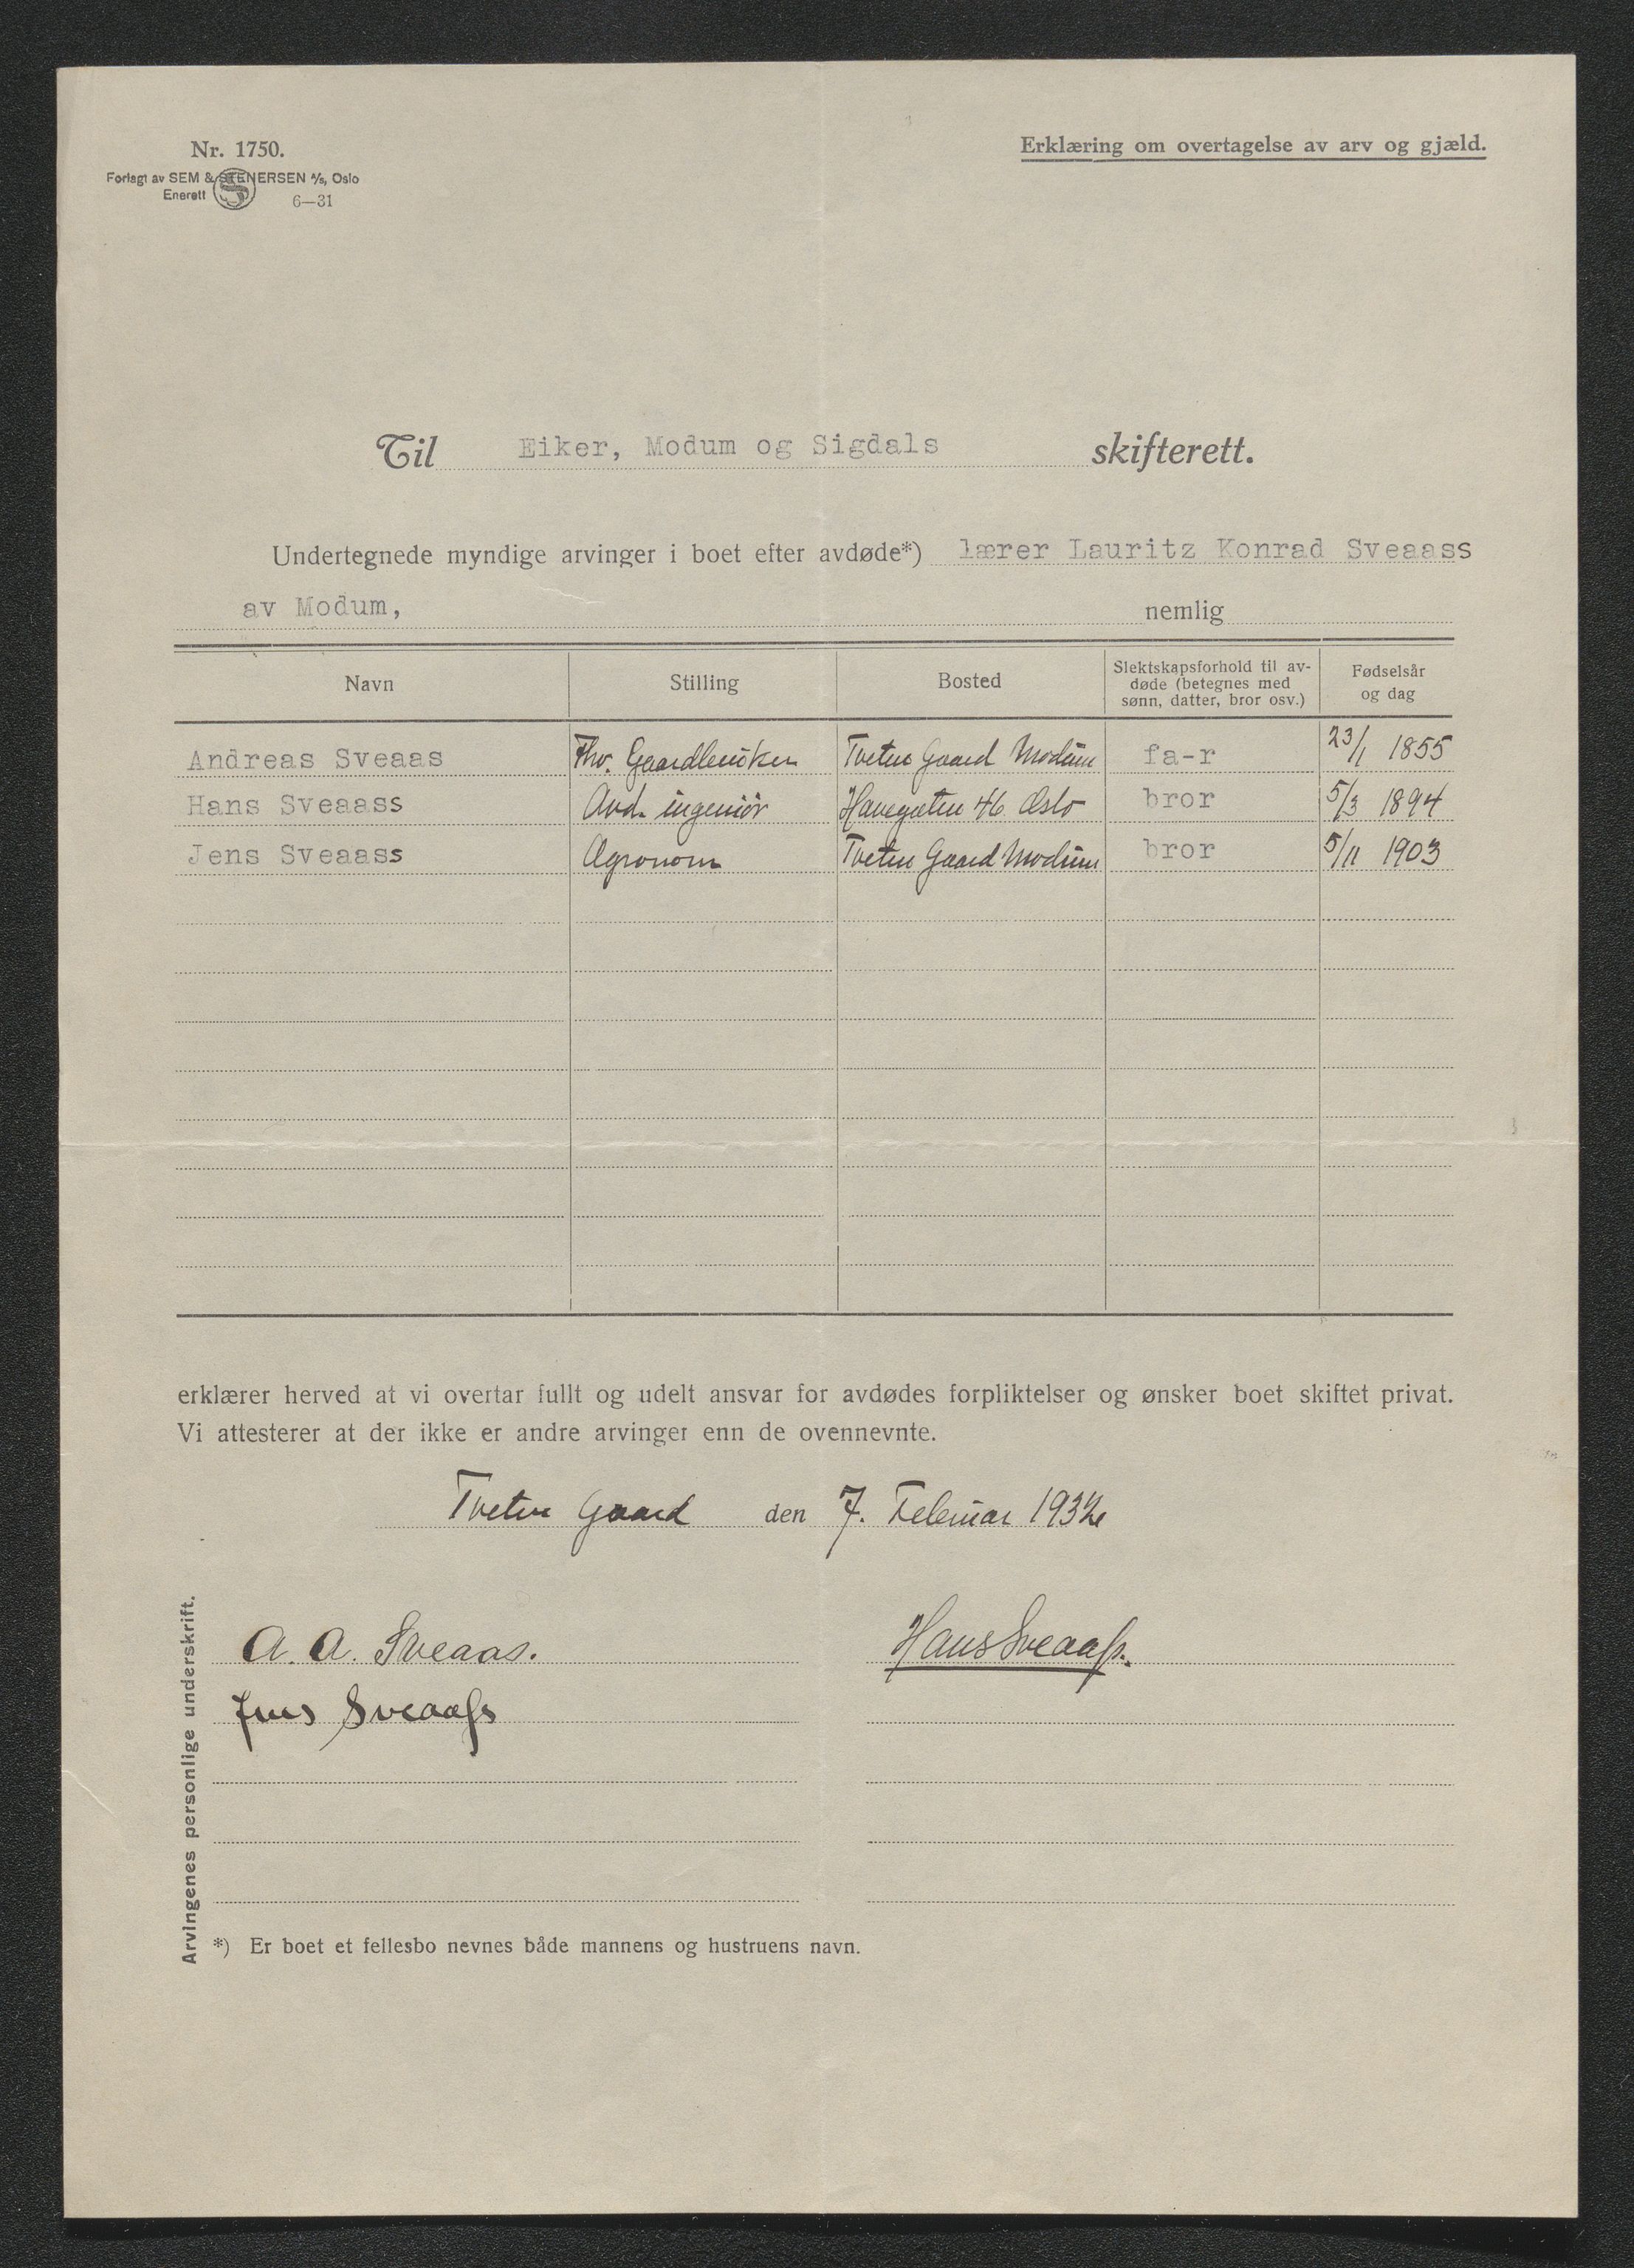 Nr. 1750.
Forlagt av SEM & STENERSEN A/s, Oslo
Enerett 6—31
Erklæring om overtagelse av arv og gjæld.
Til Eiker, Modum og Sigdals skifterett.
Undertegnede myndige arvinger i boet efter avdøde*) lærer Lauritz Konrad Sveaass
av Modum, nemlig
Navn Stilling Bosted Slektskapsforhold til avdøde (betegnes med sønn, datter, bror osv.) Fødselsår og dag
Andreas Sveaas Fhv. Gaardbruker Tveten Gaard Modum fa-r 23/1 1855
Hans Sveaass Avd. ingeniør Havegaten 46 Oslo bror 5/3 1894
Jens Sveaass Agronom Tveten Gaard Modum bror 5/11 1903
erklærer herved at vi overtar fullt og udelt ansvar for avdødes forpliktelser og ønsker boet skiftet privat.
Vi attesterer at der ikke er andre arvinger enn de ovennevnte.
Tveten Gaard den 7. Februar 1932
Arvingenes personlige underskrift.
A. A. Sveaas. Hans Sveaass.
Jens Sveaass
*) Er boet et fellesbo nevnes både mannens og hustruens navn.